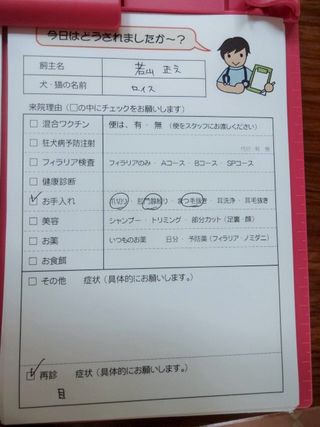 今日はどうされましたか〜?
飼主名 若山 正え
犬・猫の名前 ロイス
来院理由(□の中にチェックをお願いします)
□ 混合ワクチン 便は、有・無 (便をスタッフにお渡しください)
□ 狂犬病予防注射
□ フィラリア検査 フィラリアのみ・Aコース・Bコース・SPコース
□ 健康診断
□ お手入れ 爪切り・肛門腺絞り・まつ毛抜き・耳洗浄・耳毛抜き
□ 美容 シャンプー・トリミング・部分カット(足裏・顔)
□ お薬 いつものお薬 日分・予防薬(フィラリア・ノミダニ)
□ お食餌
□ その他 症状(具体的にお願いします。)
□ 再診 症状(具体的にお願いします。)
目